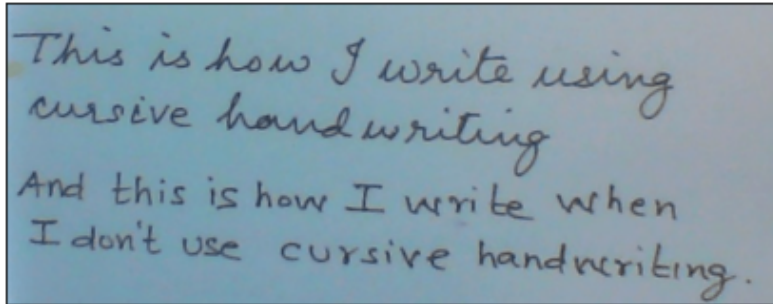 This is how I write using
cursive handwriting
And this is how I write when
I don't use cursive handwriting.